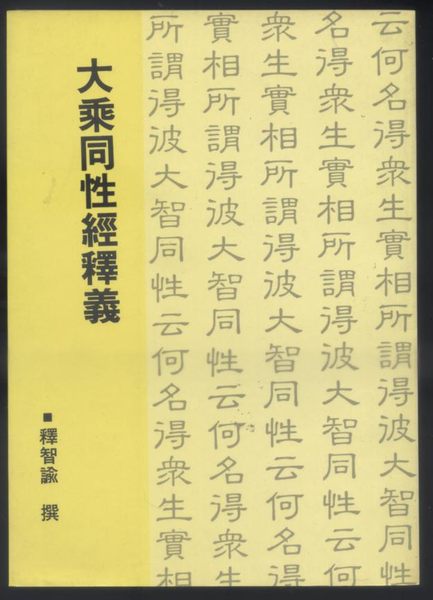 云何名得衆生實相所謂得彼大智同性
名得衆生實相所謂得彼大智同性云何
衆生實相所謂得彼大智同性云何名得
實相所謂得彼大智同性云何名得衆生
所謂得彼大智同性云何名得衆生實相
大乘同性經釋義
■釋智諭 撰